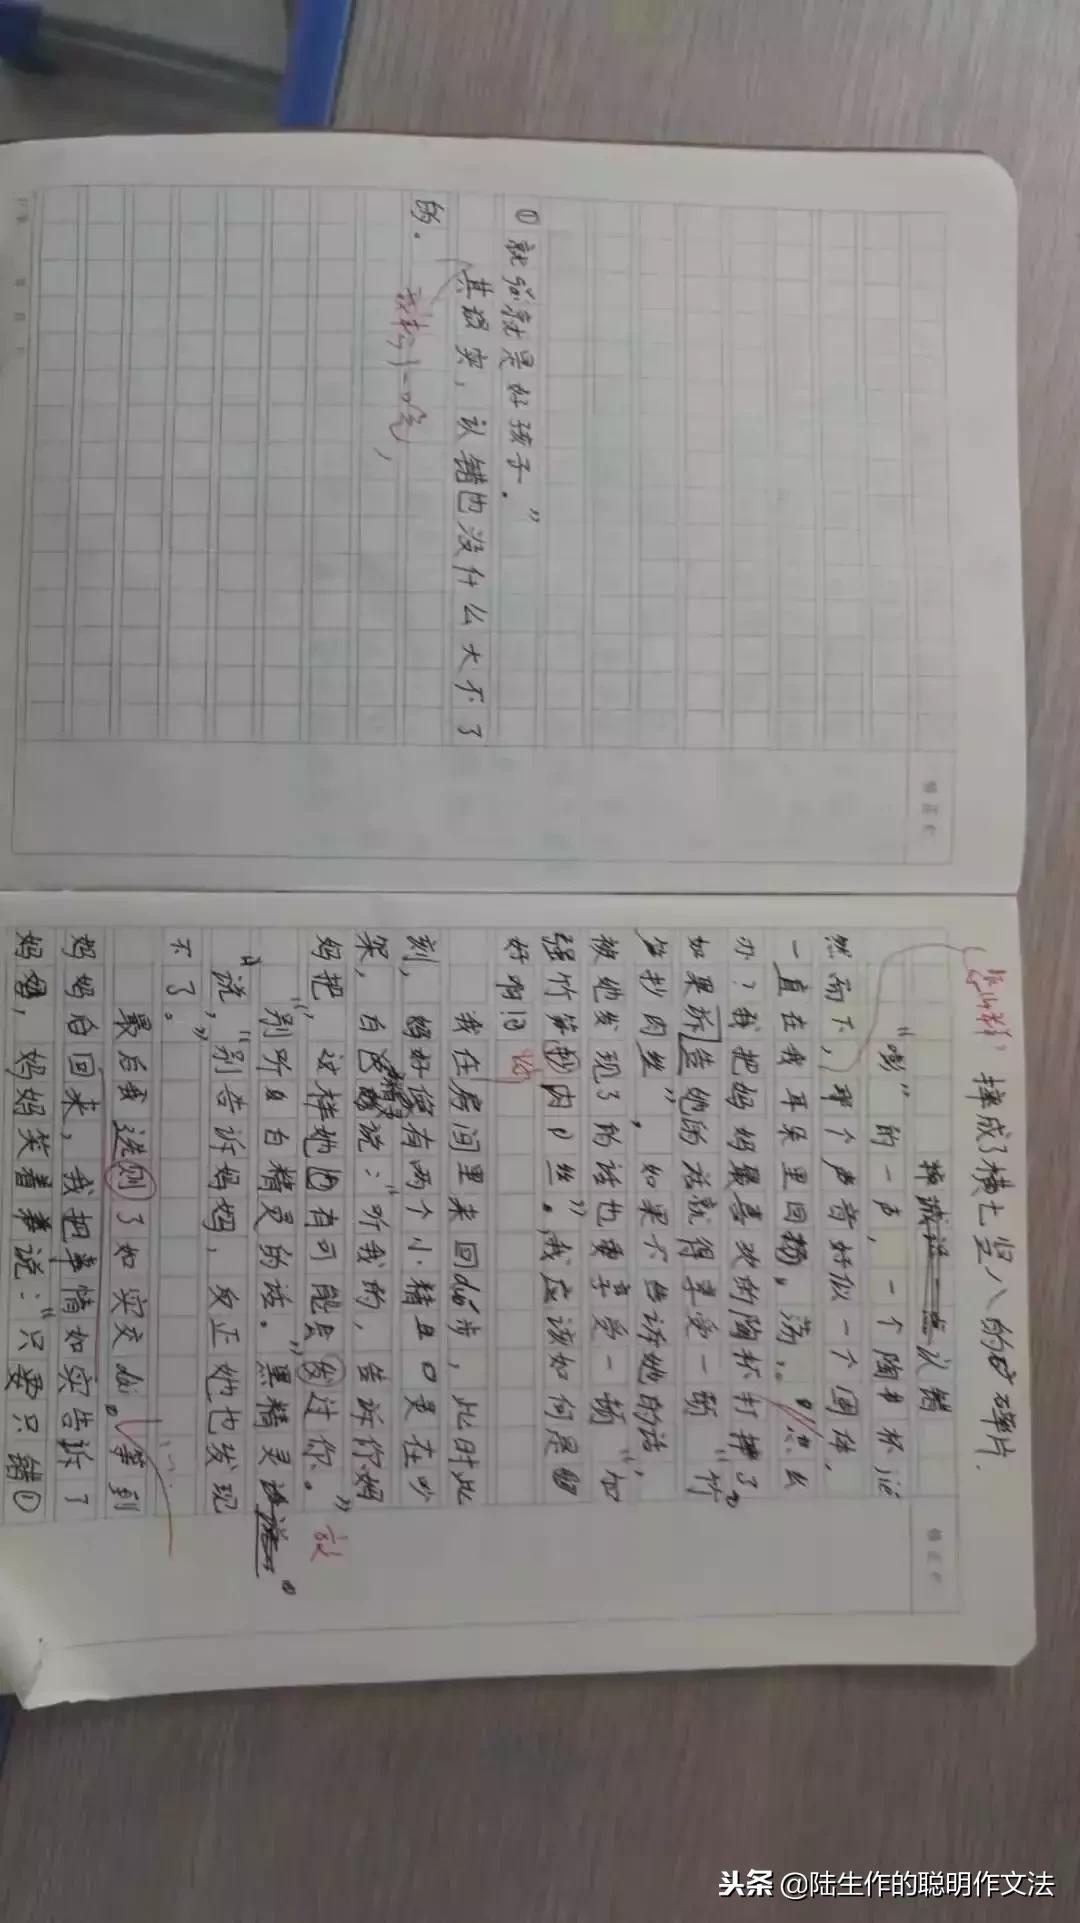 摔成了横七竖八的碎片.
认错
“嘭”的一声，一个陶瓷杯jiē
然而下，那个声音好似一个固体，
一直在我耳朵里回扬，荡。怎么
办？我把妈妈最喜欢的陶杯打摔了。
如果拆造她的话就得享受一顿“竹
笋抄肉丝”，如果不告诉她的话，
被她发现了的话也要享受一顿“加
强竹笋抄肉丝”。我应该如何是
好啊！
炒
我在房间里来回duó步，此时此
刻，好像有两个小精灵在吵
架，白精灵说：“听我的，告诉你妈
妈把，这样她有可能员发过你。”
放
“别听白精灵的话。”黑精灵
说，“别告诉妈妈，反正她也发现
不了。”
最后我选则了如实交dài。等到
妈妈自回来，我把事情如实告诉了
妈妈，妈妈笑着说：“只要只错
①就就是好孩子。”
其实，认错也没什么大不了
的.
头条 @陆生作的聪明作文法